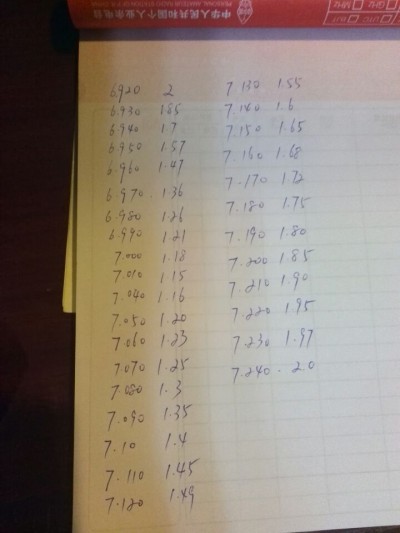 中华人民共和国个人业余电台
MHz
UTC
6.920 2
6.930 1.85
6.940 1.7
6.950 1.57
6.960 1.47
6.970 1.36
6.980 1.26
6.990 1.21
7.000 1.18
7.010 1.15
7.040 1.16
7.050 1.20
7.060 1.23
7.070 1.25
7.080 1.3
7.090 1.35
7.10 1.4
7.110 1.45
7.120 1.49
7.130 1.55
7.140 1.6
7.150 1.65
7.160 1.68
7.170 1.72
7.180 1.75
7.190 1.80
7.200 1.85
7.210 1.90
7.220 1.95
7.230 1.97
7.240 2.0